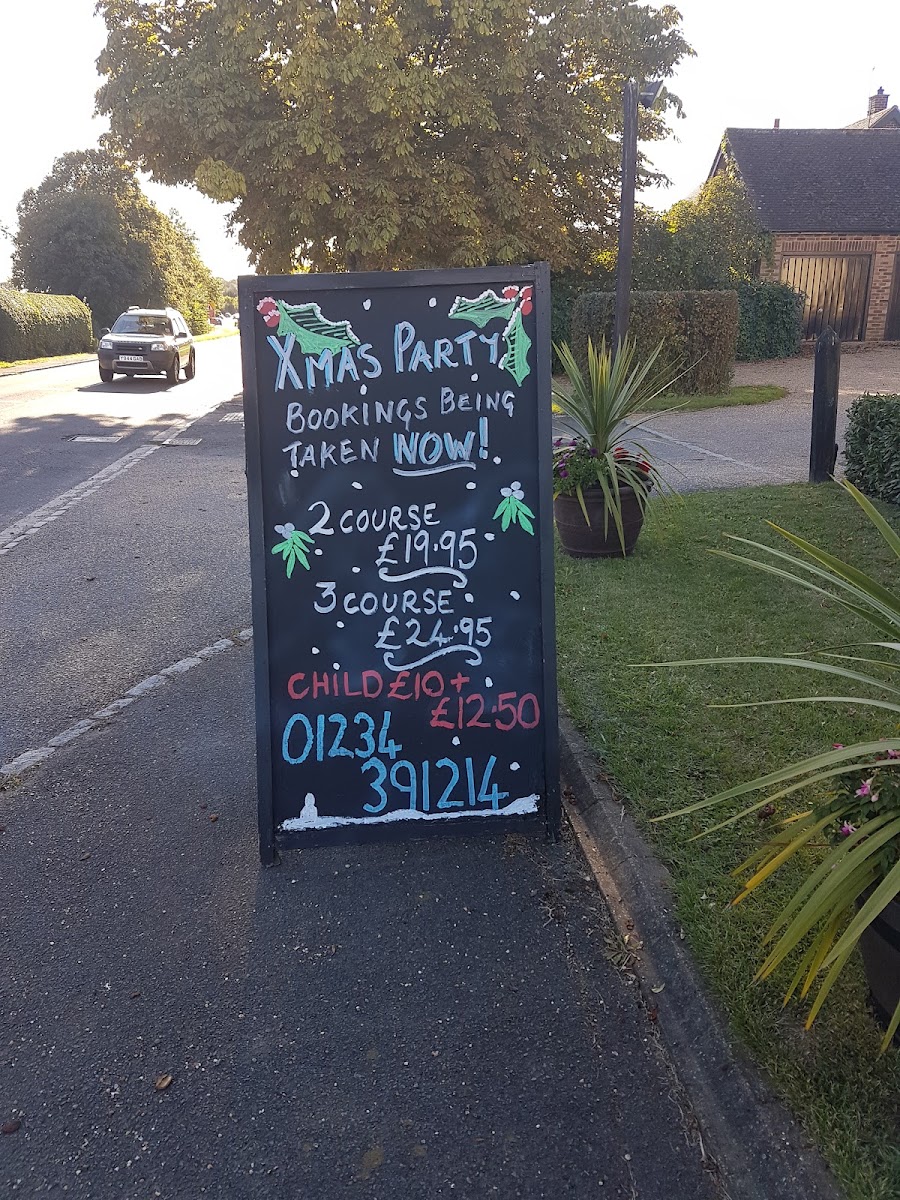 XMAS PARTY
BOOKINGS BEING
TAKEN NOW!
2 COURSE
£19.95
3 COURSE
£24.95
CHILD £10 +
£12.50
01234
391214